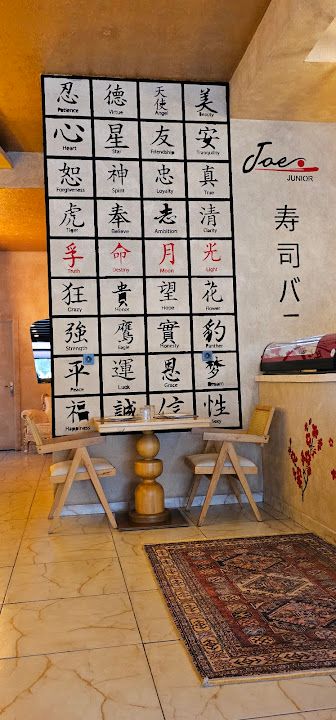 忍 德 天使 美
Patience Virtue Angel Beauty
心 星 友 安
Heart Star Friendship Tranquility
恕 神 忠 真
Forgiveness Spirit Loyalty True
虎 奉 志 清
Tiger Believe Ambition Clarity
孚 命 月 光
Truth Destiny Moon Light
狂 貴 望 花
Crazy Honor Hope Flower
強 鷹 實 豹
Strength Eagle Honesty Panther
平 運 恩 夢
Peace Luck Grace Dream
福 誠 信 性
Happiness Sexy
Joe
JUNIOR
寿司バー